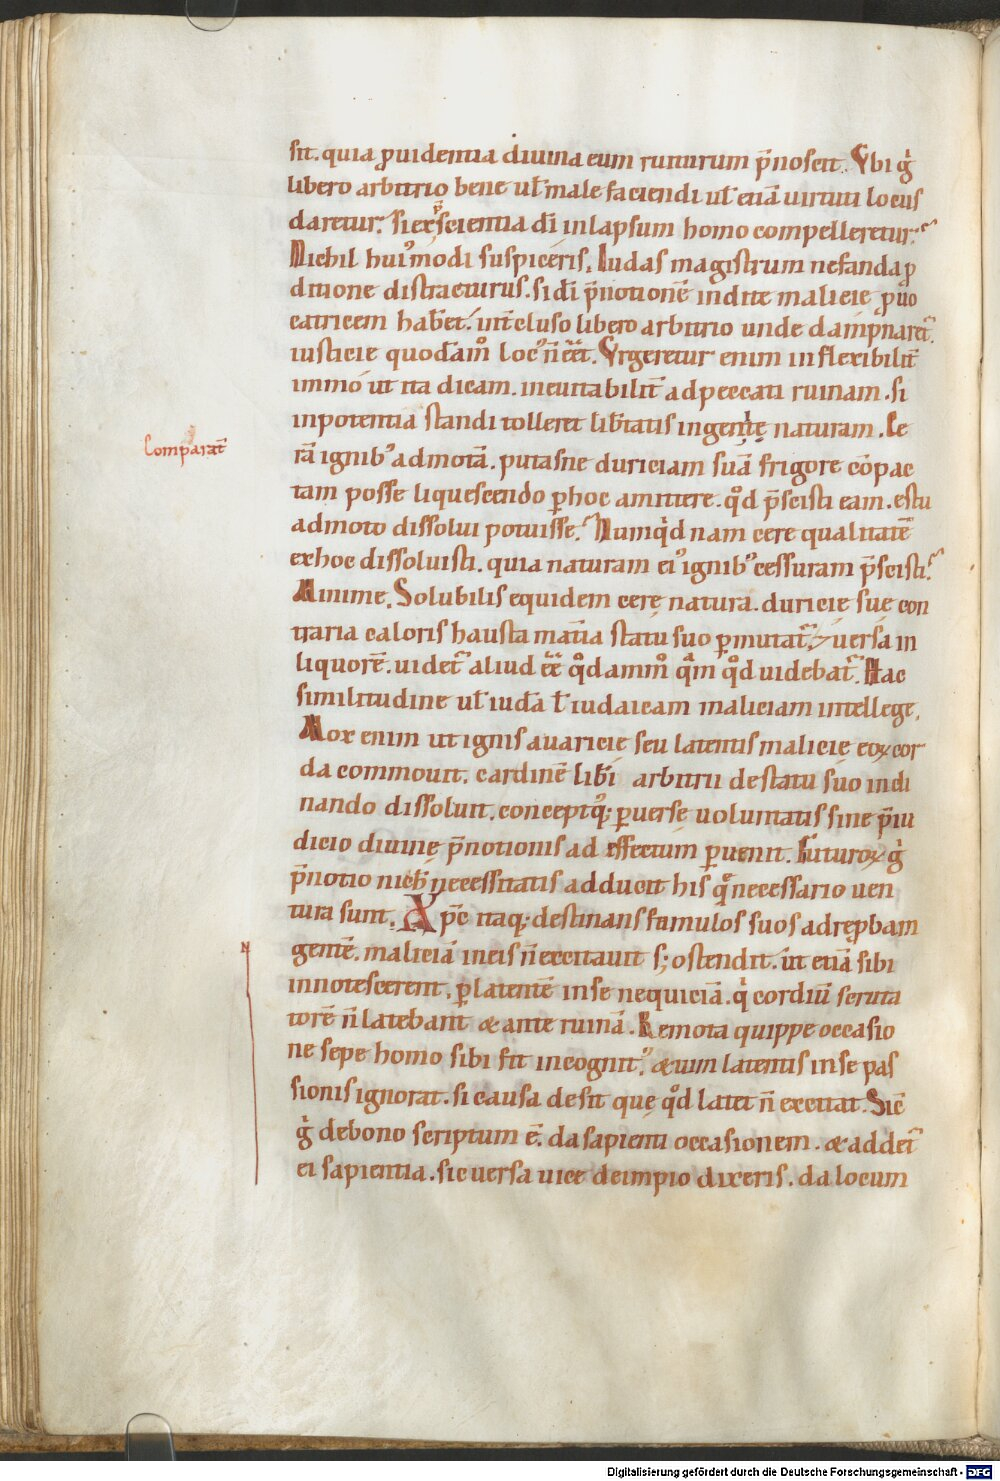 sit. quia ꝓuidentia diuina eum ruiturum p̄nosceit. Vbi g̉
libero arbitrio bene ul̄ male faciendi ul̄ etiā uirtuti locus
daretur. si ex p̄scientia dī in lapsum homo compelleretur.
Nichil hui᾽modi suspiceris. Iudas magistrum nefanda ꝓ
ditione distracturus. si dī p̄notionē indite malicie ꝓuo
catricem habet. int̄cluso libero arbitrio unde dampnaret᷑.
iusticie quodāmº loc᾽ n̄ eēt. Vrgeretur enim inflexibilit̄
immo ut ita dicam. ineuitabilit̄ ad peccati ruinam. si
inpotentia standi tolleret lib̄tatis ingenitę naturam. Ce
Comparat᷑
rā ignib᾽ admotā. putasne duriciam suā frigore cōpac
tam posse liquescendo ꝑ hoc amittere. qd̄ p̄scisti eam. estu
admoto dissolui potuisse. Numqd̄ nam cere qualitatē
ex hoc dissoluisti. quia naturam ei᾽ ignib᾽ cessuram p̄scisti.
Minime. Solubilis equidem cerę natura. duricie sue con
traria caloris hausta mat̄ia statu suo ꝑmutat᷑. & uersa in
liquorē. uidet᷑ aliud eē qd̄ammº qā̄m qd̄ uidebat᷑. Hac
similitudine ul̄ iudā l̄ iudaicam maliciam intellege.
Mox enim ut ignis auaricie seu latentis malicię eoꝝ cor
da commouit. cardinē lib̄i arbitrii de statu suo indi
nando dissoluit. conceptꝗ; ꝑuerse uoluntatis sine p̄iu
dicio diuinę p̄notionis ad effectum ꝑuenit. Futuroꝝ g̉
p̄notio nich̄ necessitatis adducit his q̄ necessario uen
tura sunt. Xp̄c itaq; destinans famulos suos ad reꝓbam
gentē. maliciā in eis n̄ excitauit s; ostendit. ut etiā sibi
innotescerent. ꝑ latentē in se nequiciā. q̉ cordiū scruta
torē n̄ latebant & ante ruinā. Remota quippe occasio
ne sepe homo sibi fit incognit᾽. & uim latentis in se pas
sionis ignorat. si causa desit quę qd̄ latet n̄ excitat. Sic̄
g̉ de bono scriptum ē. da sapienti occasionem. & addet᷑
ei sapientia. sic uersa uice de impio dixeris. da locum
N
Digitalisierung gefördert durch die Deutsche Forschungsgemeinschaft - DFG